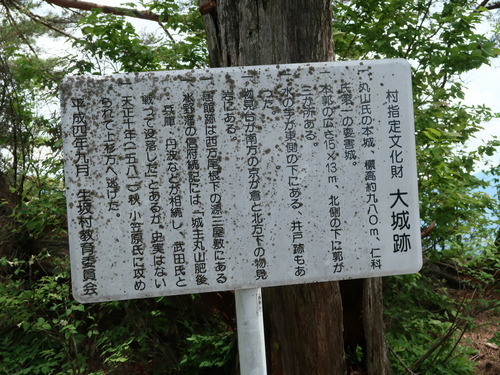 村指定文化財 大城跡
一 丸山氏の本城、標高約九八〇m、仁科
氏第一の要害城。
一 本郭の広さ15×13m、北側の下に郭が
三か所ある。
一 水の手が東側の下にある、井戸跡もあ
った。
一 物見台が南方の京が倉と北方下の物見
岩にある。
一 居館跡は西方尾根下の源三屋敷にある
水野藩の信府統記には、「城主丸山肥後
兵庫 丹波などが相続し、武田氏と
戦って没落した」とあるが、史実はない
天正十年(一五八二)秋、小笠原氏に攻め
られて上杉方へ逃げた。
平成四年九月 生坂村教育委員会